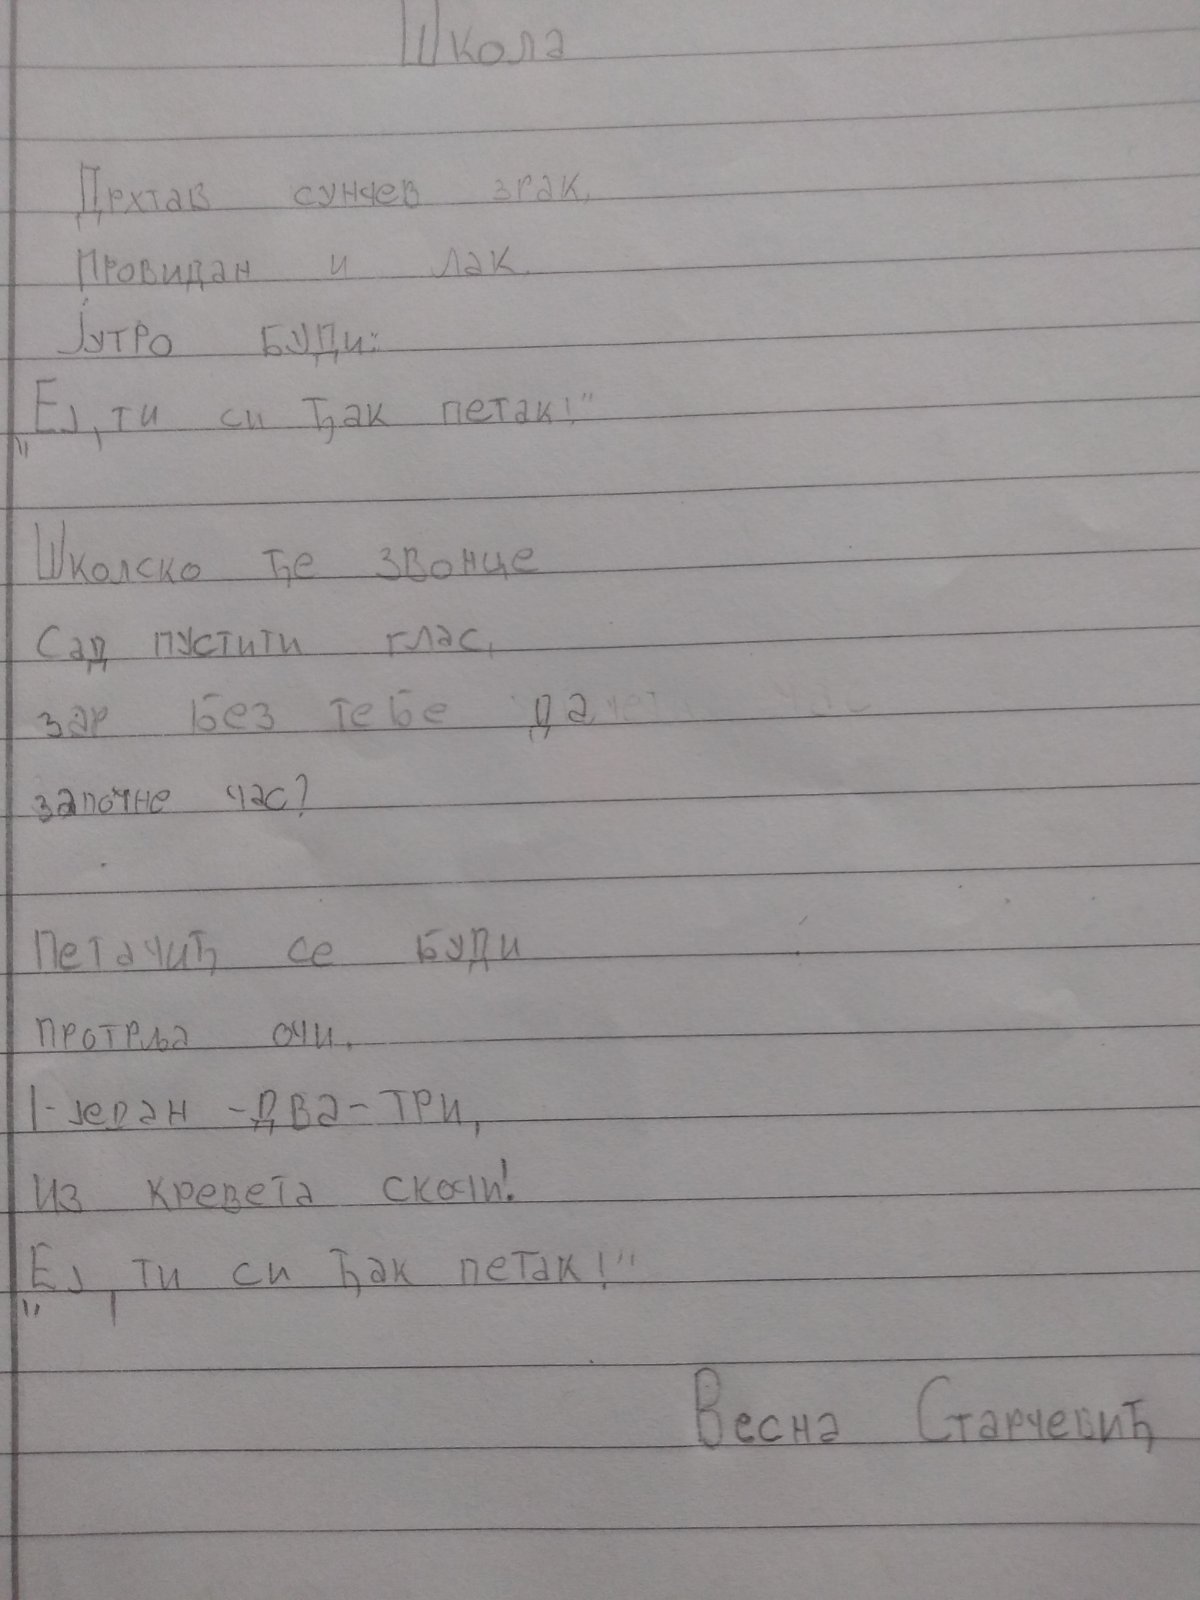 Школа
Дрхтав сунчев зрак,
Провидан и лак.
Јутро буди:
„Еј, ти си ђак петак!"
Школско ће звонце
Сад пустити глас,
зар без тебе да
започне час?
Петачић се буди
протрља очи.
1-један-два-три,
Из кревета скочи!
„Еј, ти си ђак петак!"
Весна Старчевић